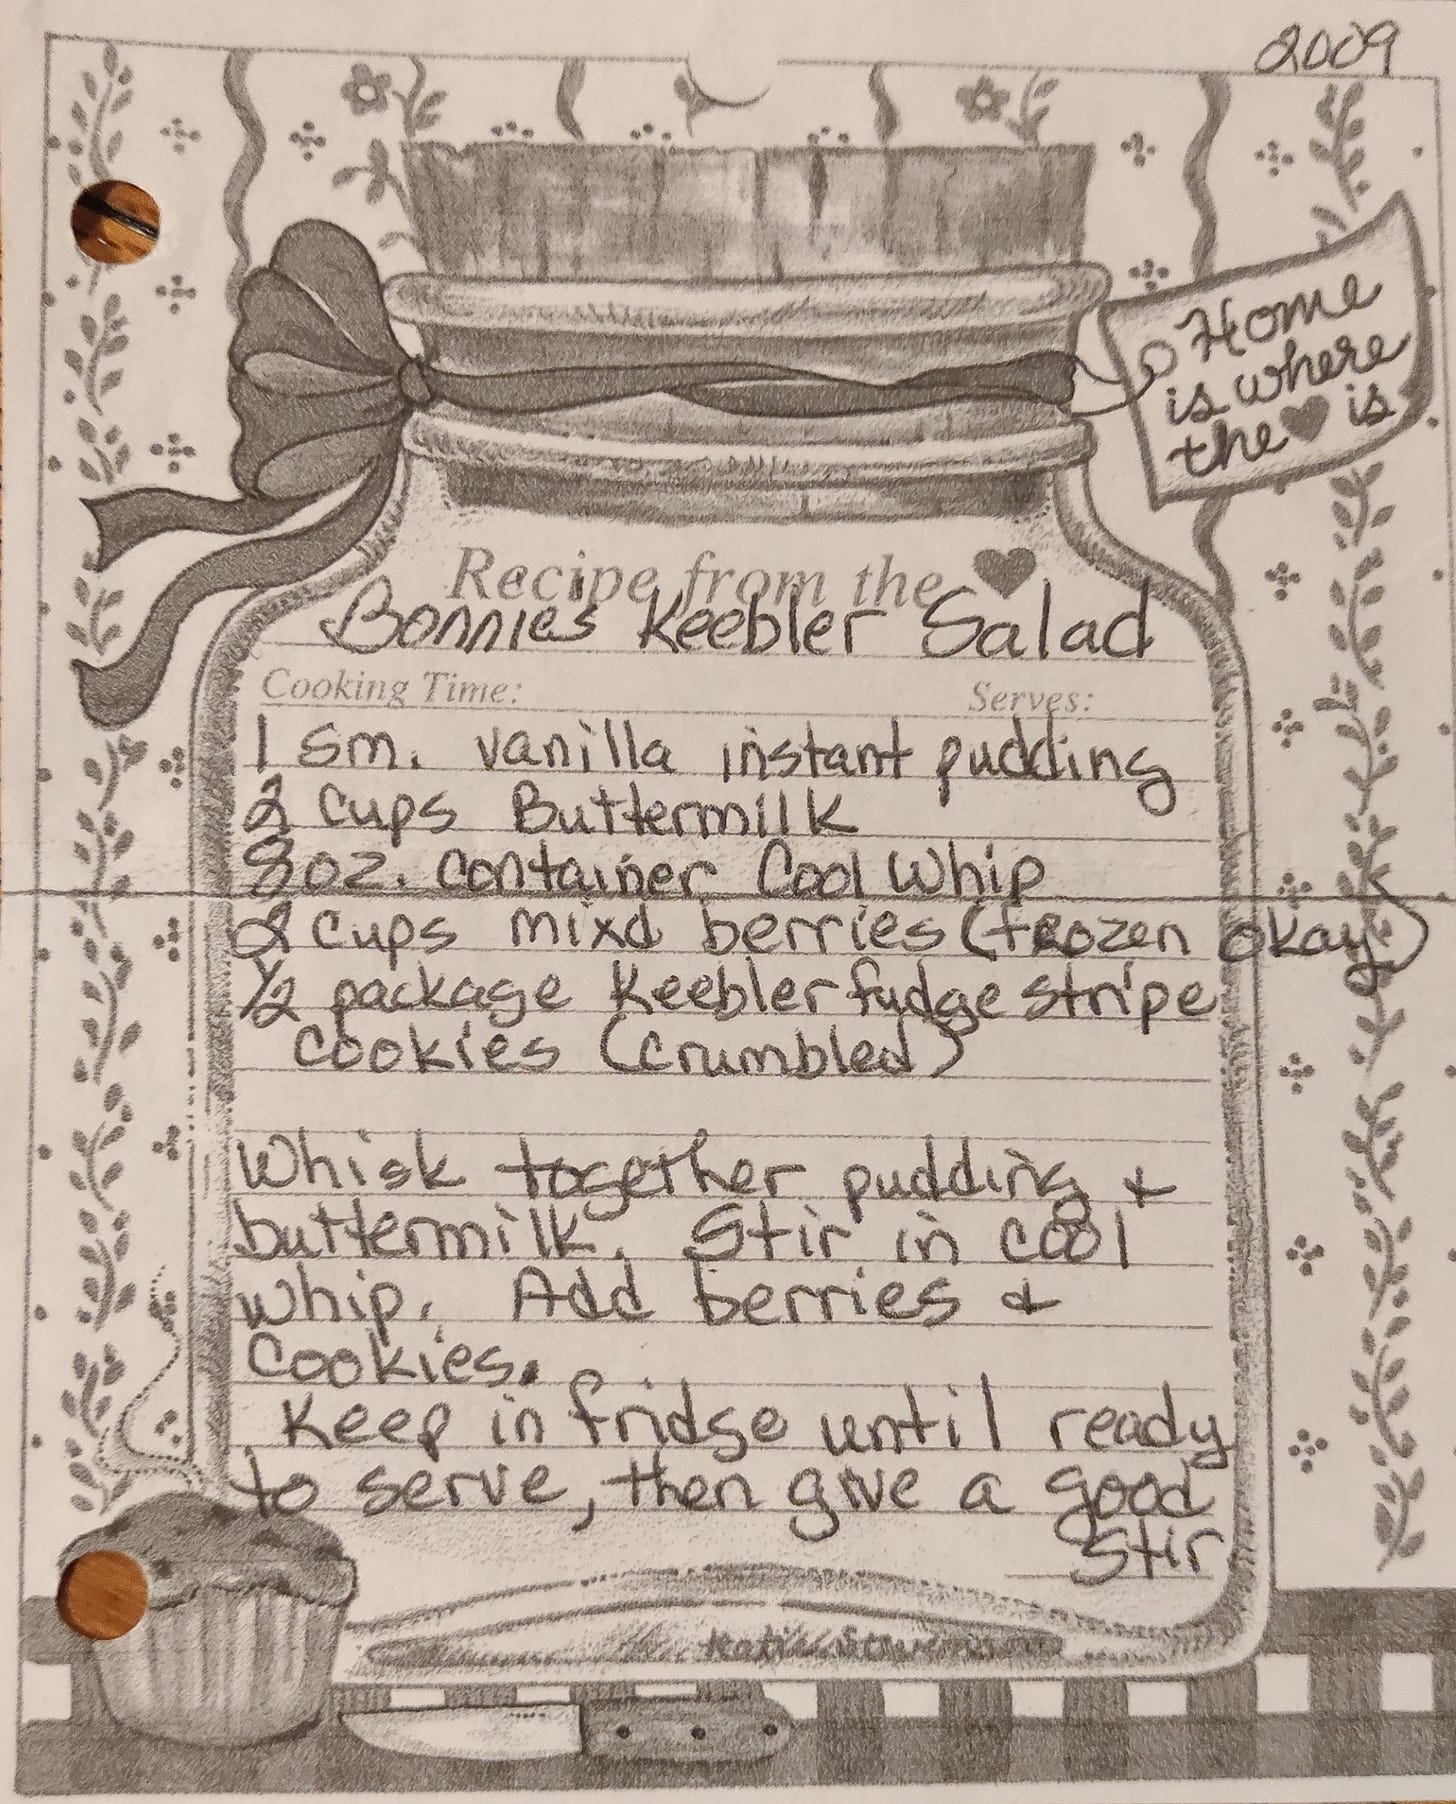 2009
Home
is where
the ♥ is
Recipe from the ♥
Bonnies Keebler Salad
Cooking Time: Serves:
1 sm. vanilla instant pudding
2 cups Buttermilk
8oz. container Cool Whip
2 cups mixd berries (frozen okay)
1/2 package Keebler fudge stripe
cookies (crumbled)
Whisk together pudding &
buttermilk. Stir in cool
whip. Add berries &
Cookies.
Keep in fridge until ready
to serve, then give a good
stir